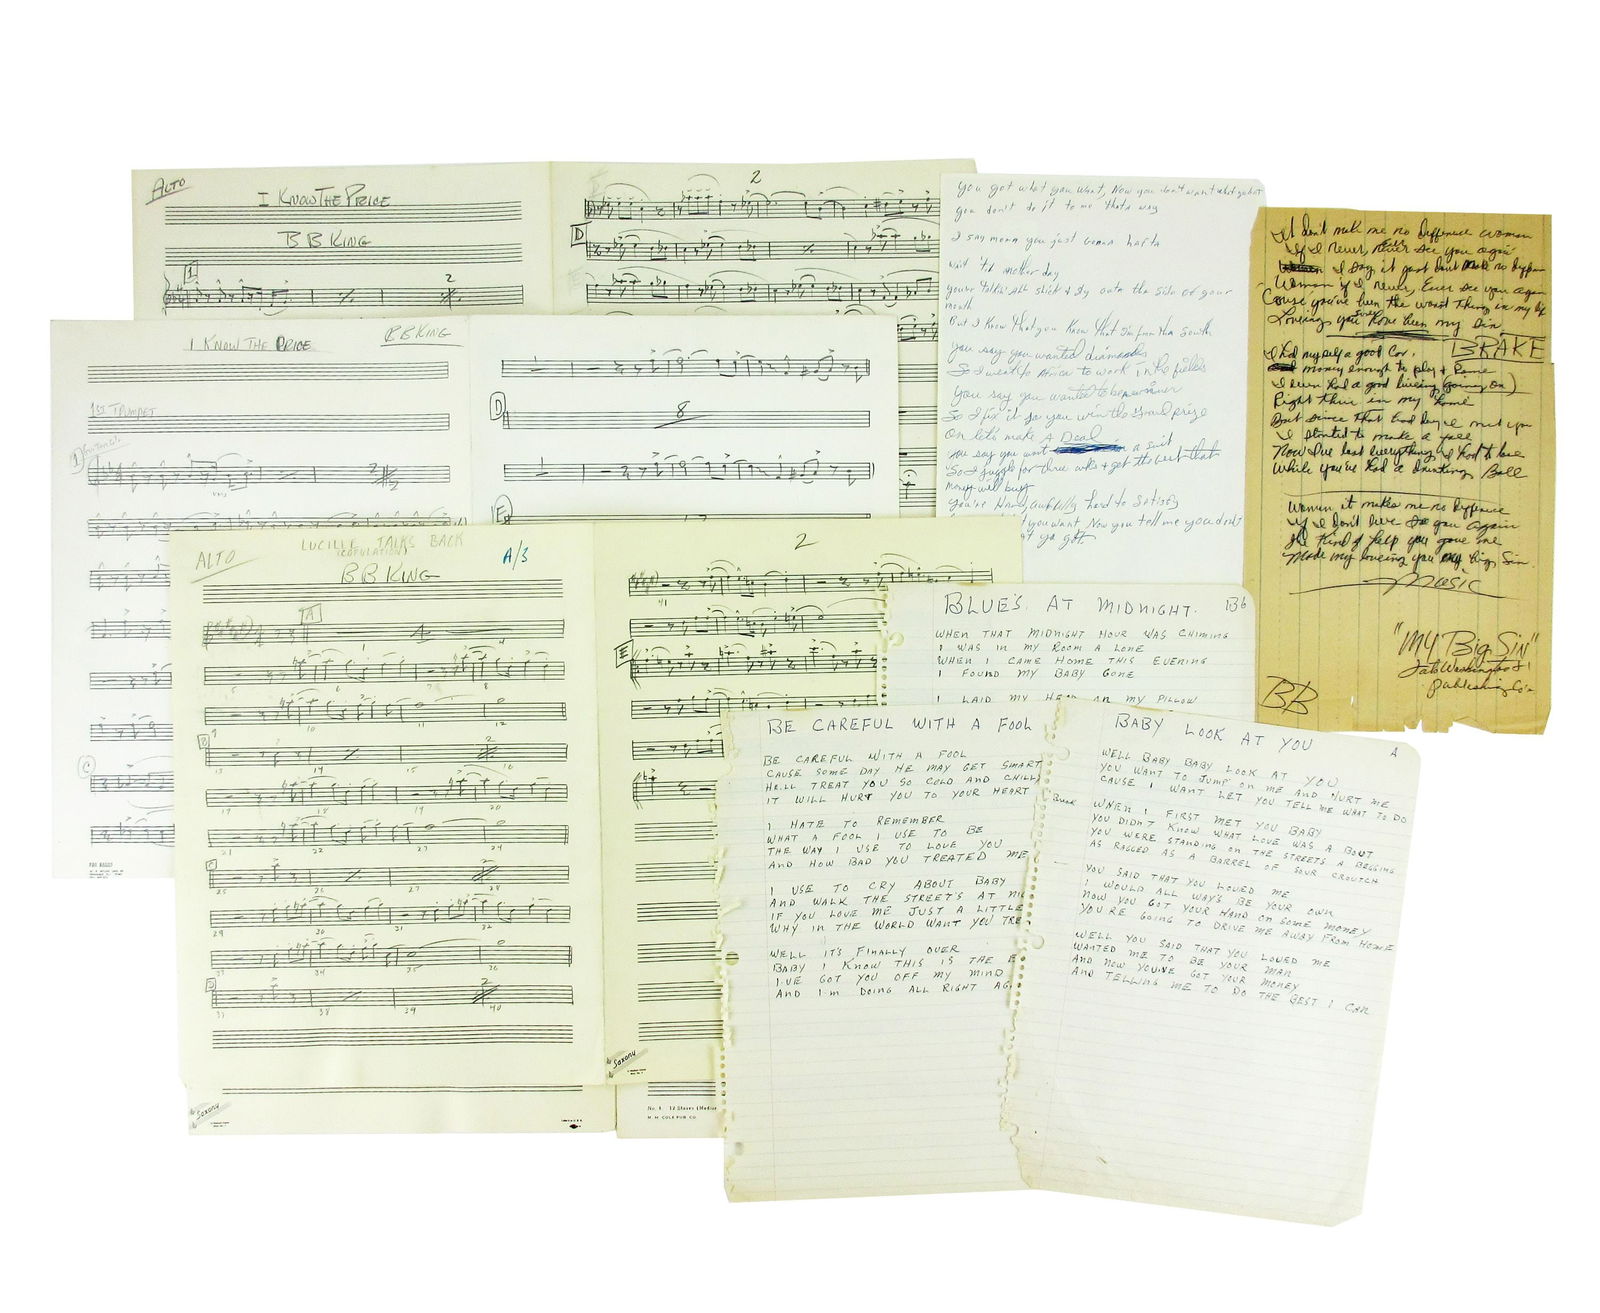 ALTO
I KNOW THE PRICE
B B KING
1
2
2
D
I KNOW THE PRICE
B B KING
1ST TRUMPET
1
2
C
D
8
E
ALTO
LUCILLE TALKS BACK
(COPULATION)
B B KING
A/3
A
4
1
4
5
6
7
8
10
11
12
B
13
14
15
16
17
19
20
21
22
23
24
C
25
26
27
28
29
30
31
32
34
35
36
D
37
38
39
40
Saxony
2
41
E
Saxony
No. 1. 12 Staves (Medium
M. M. COLE PUB. CO.
You got what you want, Now you don't want what you got
you don't do it to me thats way
I say mama you just gonna hafta
wait 'til another day
your talkin All slick & sly outa the side of your
mouth
But I Know that you Know that I'm from tha south
You say you wanted diamonds
So I went to Africa to work in the fields
You say you wanted to be a winner
So I fix it so you win the grand prize
On let's make A Deal
you say you want a suit
So I juggle for three wks & get the best that
money will buy
you're Awfully hard to satisfy
you want Now you tell me you don't
at ya got.
It don't make me no diffence woman
If I never, Ever see you again
I say it just dont make no diffen
Woman if I never, Ever see you again
Cause you've been the worst thing in my life
Loveing you have been my sin
BRAKE
I had myself a good Car,
money enough to play & Rome
I even had a good liveing (going on)
Right their in my home
But since that bad day I met you
I started to make a fall
Now I've lost everything I had to lose
While you've had a Ball
Woman it makes me no diffence
if I don't live to see you again
The Kind of help you gave me
Made my loveing you my big Sin.
MUSIC
"MY Big SiN"
Publishing Co's
BB
BLUE'S AT MIDNIGHT. Bb
WHEN THAT MIDNIGHT HOUR WAS CHIMING
I WAS IN MY ROOM A LONE
WHEN I CAME HOME THIS EVENING
I FOUND MY BABY GONE
I LAID MY HEAD ON MY PILLOW
BE CAREFUL WITH A FOOL
BE CAREFUL WITH A FOOL
CAUSE SOME DAY HE MAY GET SMART
HE.LL TREAT YOU SO COLD AND CHILLY
IT WILL HURT YOU TO YOUR HEART
I HATE TO REMEMBER
WHAT A FOOL I USE TO BE
THE WAY I USE TO LOVE YOU
AND HOW BAD YOU TREATED ME
I USE TO CRY ABOUT BABY
AND WALK THE STREET'S AT NIG
IF YOU LOVE ME JUST A LITTLE
WHY IN THE WORLD WANT YOU TRE
WELL IT'S FINALLY OVER
BABY I KNOW THIS IS THE E
I.VE GOT YOU OFF MY MIND
AND I.M DOING ALL RIGHT AG
BABY LOOK AT YOU A
WELL BABY BABY LOOK AT YOU
YOU WANT TO JUMP ON ME AND HURT ME
CAUSE I WANT LET YOU TELL ME WHAT TO DO
Break
WHEN I FIRST MET YOU BABY
YOU DIDN'T KNOW WHAT LOVE WAS A BOUT
YOU WERE STANDING ON THE STREETS A BEGGING
AS RAGGED AS A BARREL OF SOUR CROUTCH
YOU SAID THAT YOU LOVED ME
I WOULD ALL WAYS BE YOUR OWN
NOW YOU GOT YOUR HAND ON SOME MONEY
YOU'RE GOING TO DRIVE ME AWAY FROM HOME
WELL YOU SAID THAT YOU LOVED ME
WANTED ME TO BE YOUR MAN
AND NOW YOU.VE GOT YOUR MONEY
AND TELLING ME TO DO THE BEST I CAN